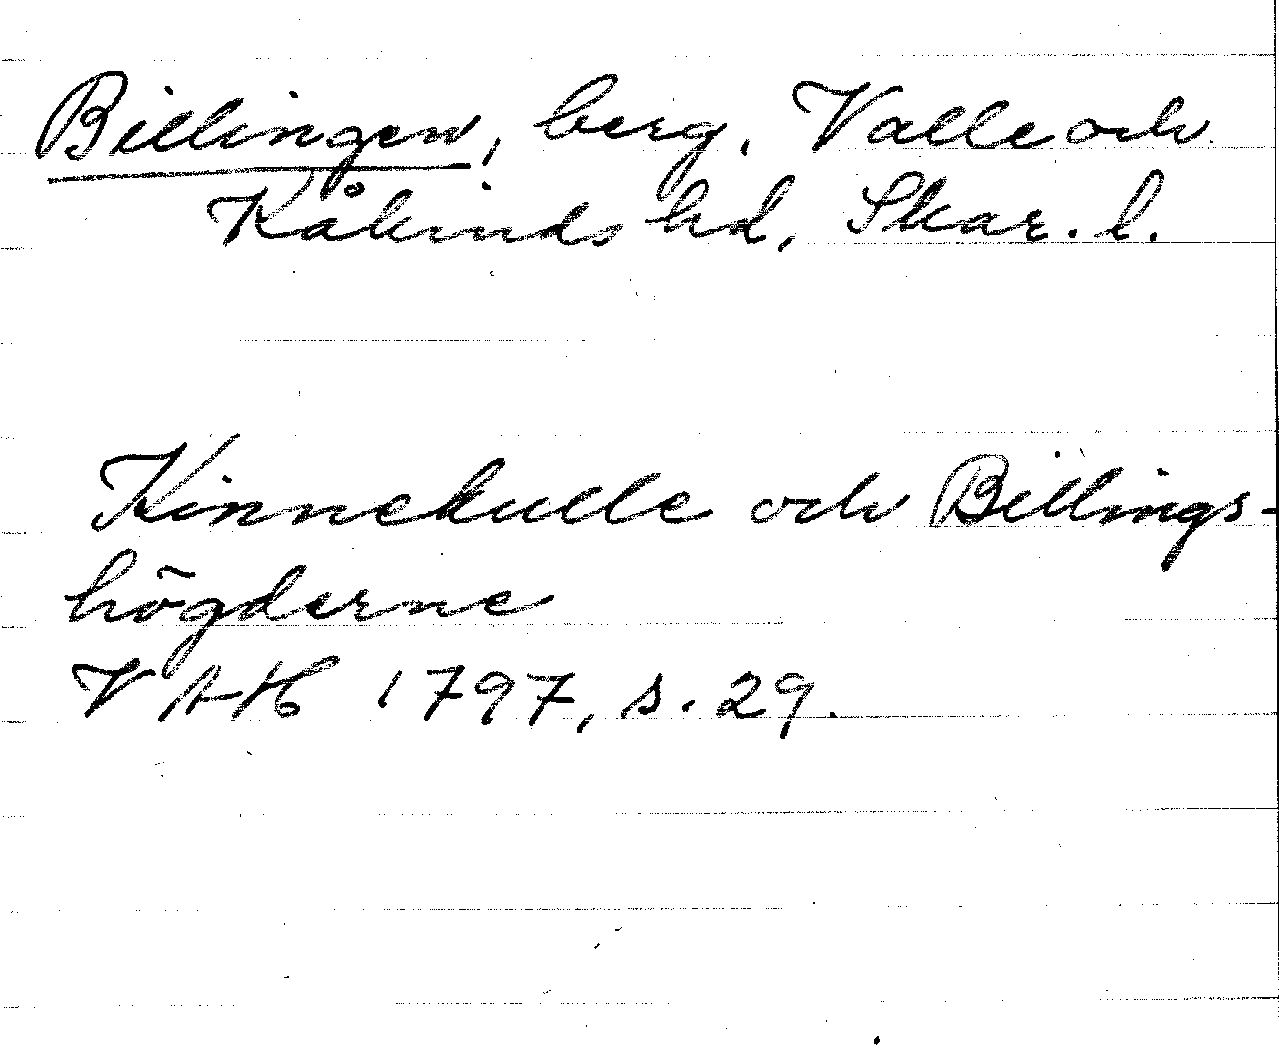 Billingen, berg, Valle och
Kåkinds hd, Skar. l.
Kinnekulle och Billings-
högderne
VAH 1797, s. 29.